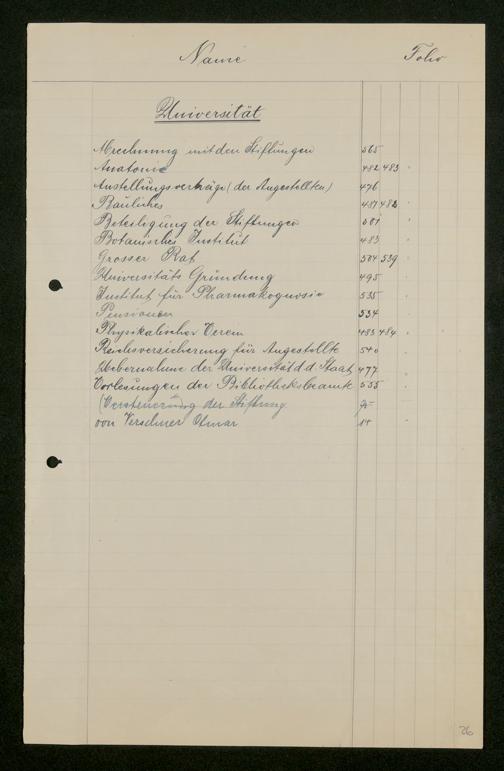 Name Folio
Universität
Abrechnung mit den Stiftungen 565
Anatomie 482 483
Anstellungsverträge (der Angestellten) 476
Bauliches 481 482
Beteiligung der Stiftungen 581
Botanisches Institut 483
Grosser Rat 584 539
Universitäts Gründung 495
Institut für Pharmakognosie 535
Pensionen 534
Physikalischer Verein 483 484
Reichsversicherung für Angestellte 540
Uebernahme der Universität d. d. Staat 477
Vorlesungen der Bibliotheksbeamte 535
(Besteuerung der Stiftung
von Verschuer Otmar 14
26